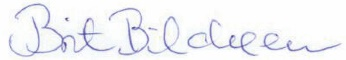 Brit Bildøen